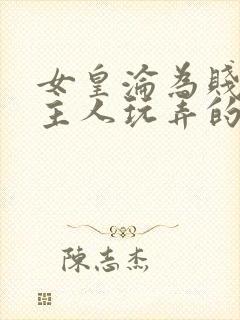 女皇淪為賤
主人玩弄的
陳志杰